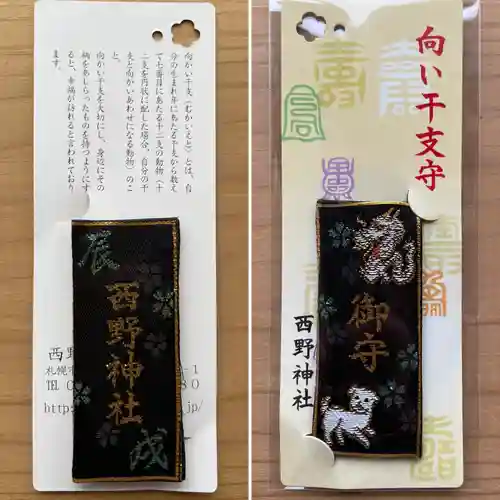 向かい干支（むかいえと）とは、自
分の生まれ年にあたる干支から数え
て七番目にあたる十二支の動物（十
二支を円状に配した場合、自分の干
支と向かいあわせになる動物）のこ
と。
向かい干支を大切にし、身近にその
柄をあしらったものを持つようにす
ると、幸福が訪れると言われており
ます。
辰
西野神社
戌
西野
札幌市
-1
TEL 0
80
http:
.jp/
向い干支守
御守
西野神社